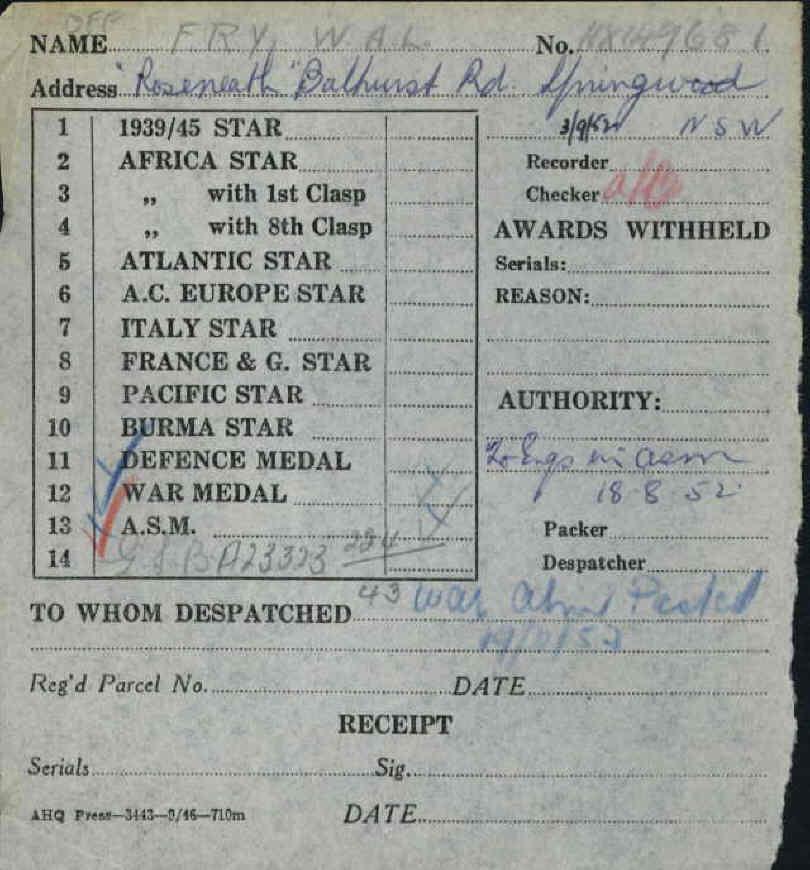 OFF
NAME FRY, W.A.L. No. NX149681
Address "Roseneath" Bathurst Rd. Springwood
1 1939/45 STAR 3/9/52 N S W
2 AFRICA STAR Recorder
3 ,, with 1st Clasp Checker
4 ,, with 8th Clasp AWARDS WITHHELD
5 ATLANTIC STAR Serials:
6 A.C. EUROPE STAR REASON:
7 ITALY STAR
8 FRANCE & G. STAR
9 PACIFIC STAR AUTHORITY:
10 BURMA STAR
11 DEFENCE MEDAL
12 WAR MEDAL 18.8.52
13 A.S.M. Packer
14 A23323 Despatcher
TO WHOM DESPATCHED 43 War Posted
Reg'd Parcel No. DATE
RECEIPT
Serials Sig.
AHQ Press—3443—9/46—710m DATE